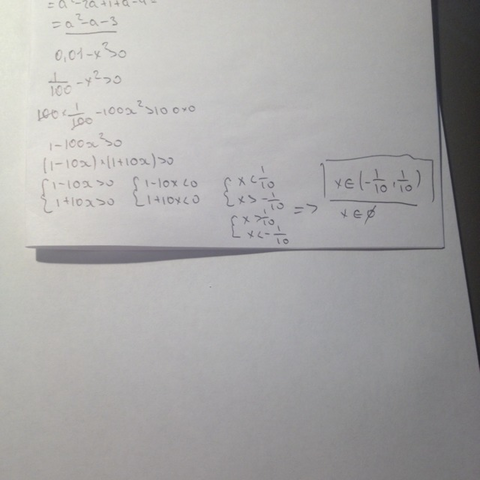 = a² - a - 3
0,01 - x² > 0
1/100 - x² > 0
100 × 1/100 - 100x² > 100 × 0
1 - 100x² > 0
(1 - 10x) × (1 + 10x) > 0
{ 1 - 10x > 0 { 1 - 10x < 0 { x < 1/10
{ 1 + 10x > 0 { 1 + 10x < 0 { x > -1/10
{ x > 1/10
{ x < -1/10
=> x ∈ (-1/10, 1/10)
x ∈ ∅